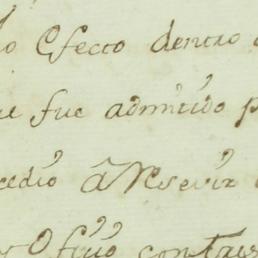 lo Efecto dentro
ue fue admitido p
cedió â Resevir
Ofiçio contar